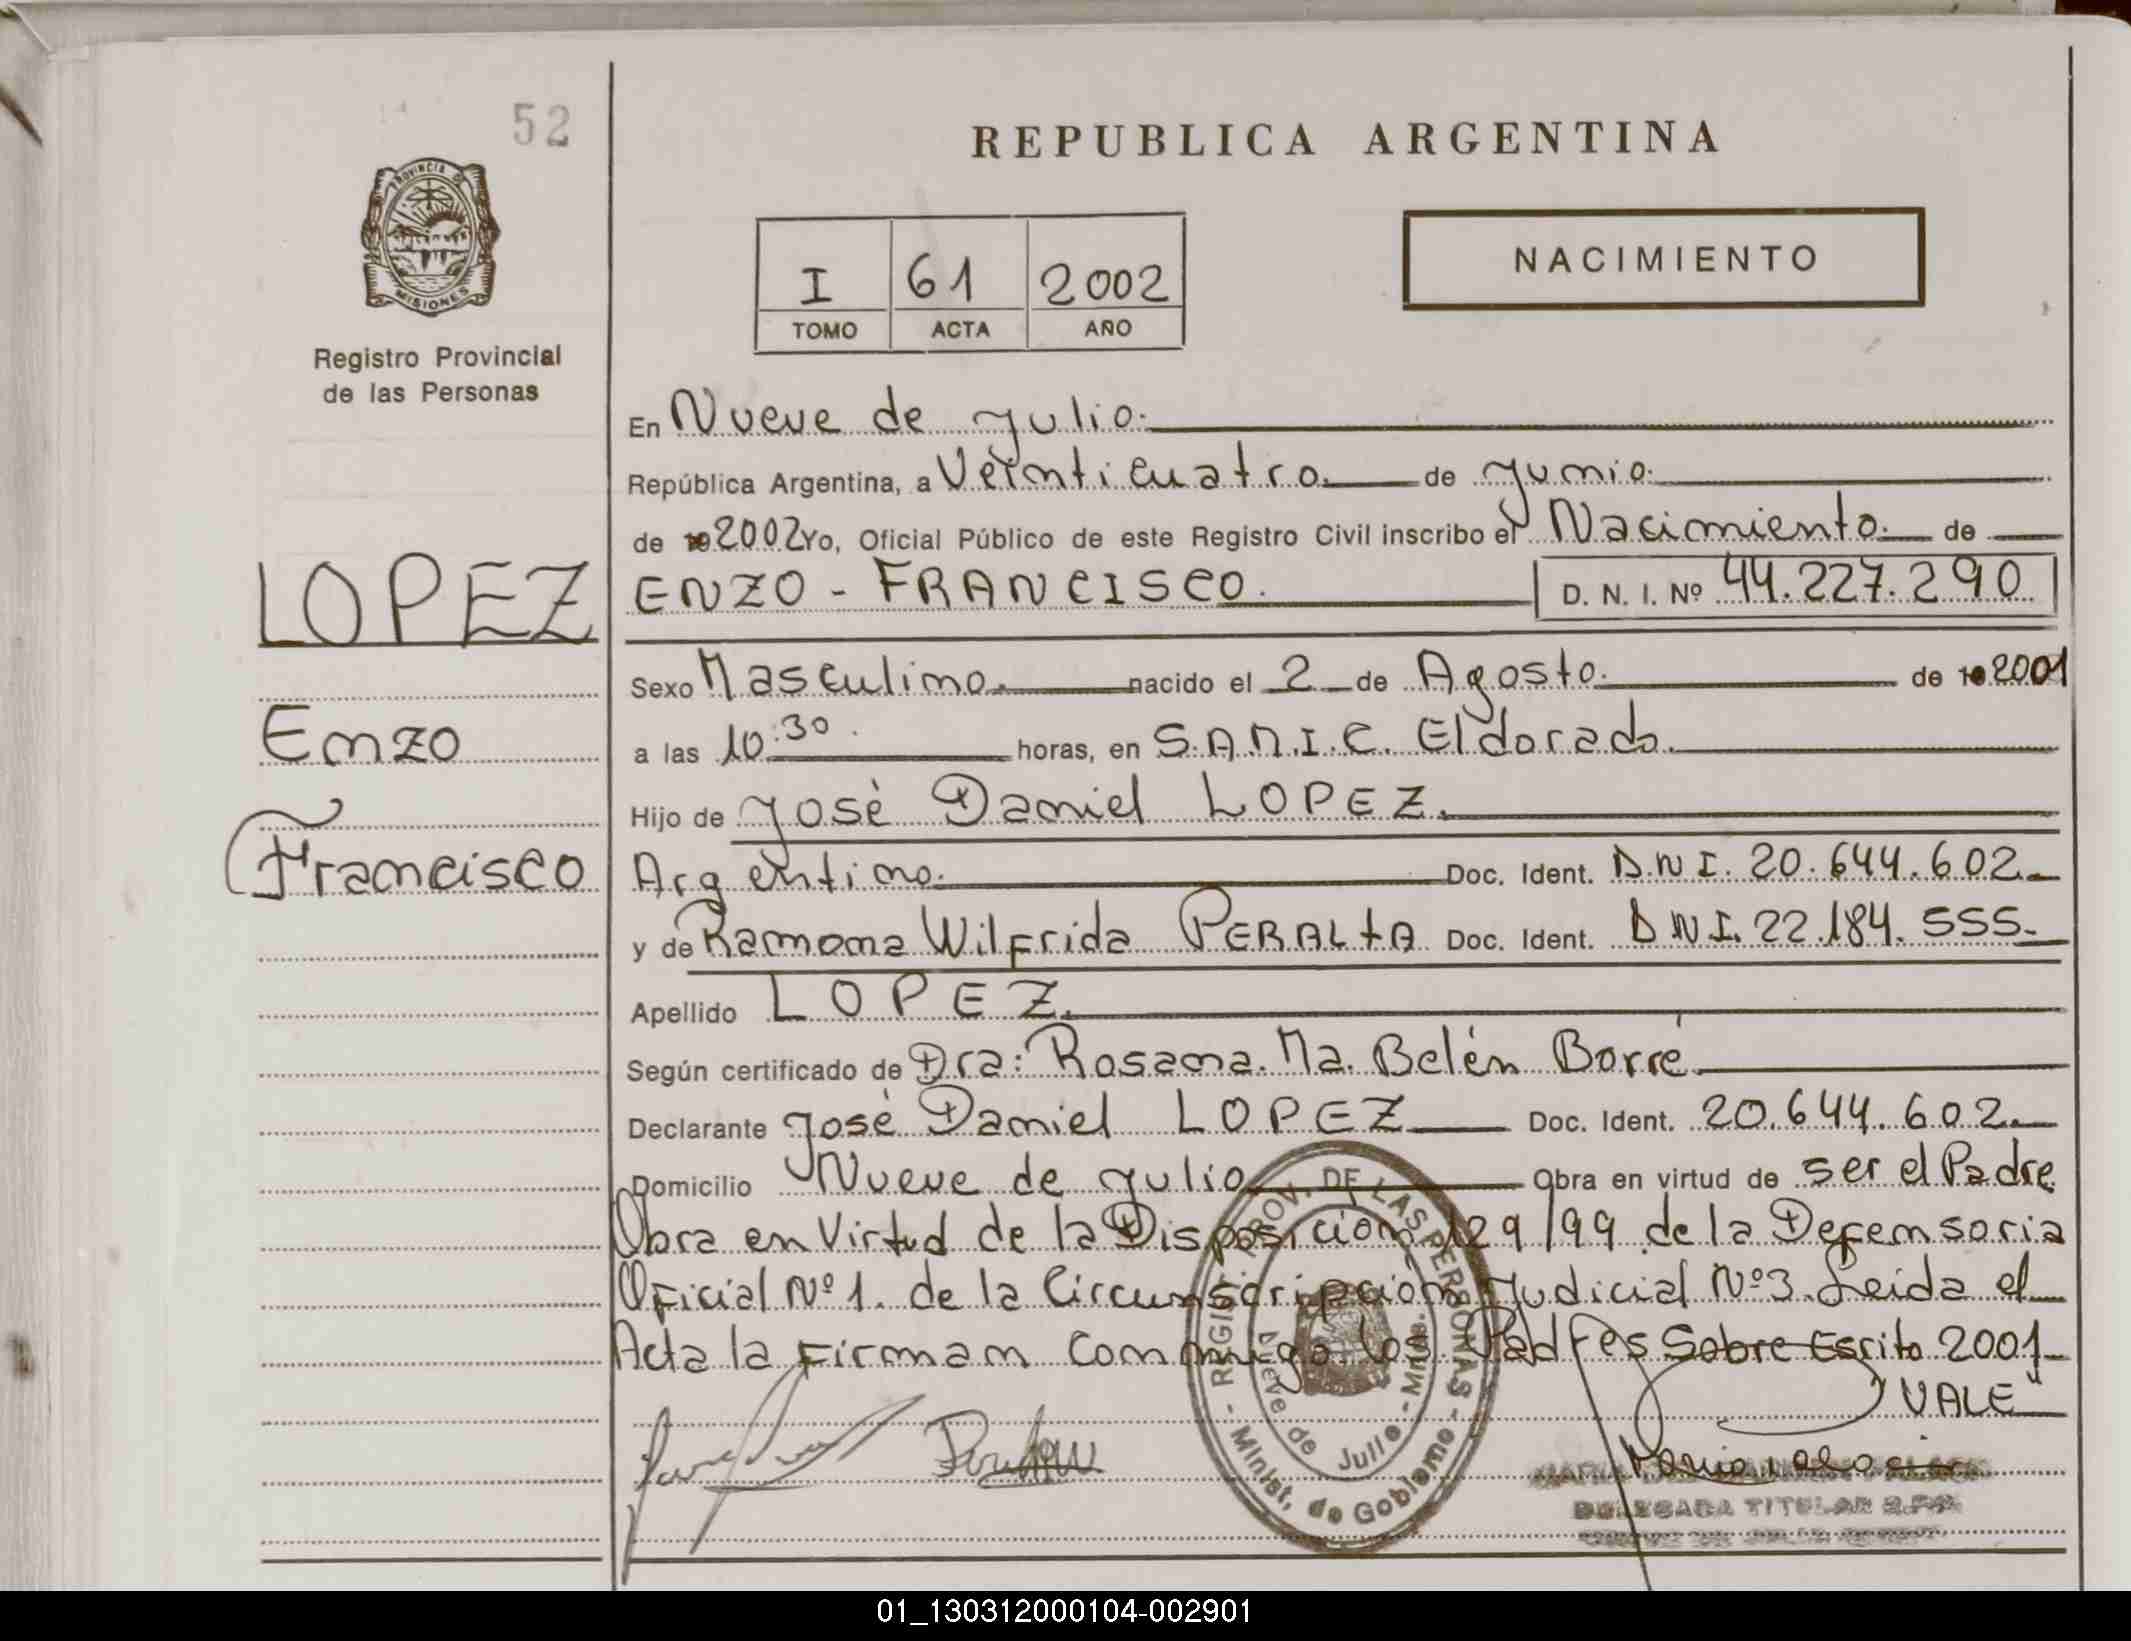 52
REPUBLICA ARGENTINA
PROVINCIA DE
MISIONES
Registro Provincial
de las Personas
I 61 2002
TOMO ACTA AÑO
NACIMIENTO
En Nueve de Julio.
República Argentina, a Veinticuatro de Junio.
de 2002 Yo, Oficial Público de este Registro Civil inscribo el Nacimiento. de
LOPEZ
ENZO - FRANCISCO. D. N. I. Nº 44.227.290
Sexo Masculino. nacido el 2 de Agosto. de 2001
Enzo
a las 10:30. horas, en S.A.M.I.C. Eldorado.
Hijo de José Daniel LOPEZ.
Francisco
Argentino. Doc. Ident. D.N.I. 20.644.602.
y de Ramona Wilfrida PERALTA Doc. Ident. D.N.I. 22.184.555.
Apellido LOPEZ.
Según certificado de Dra: Rosana. Ma. Belén Borré.
Declarante José Daniel LOPEZ Doc. Ident. 20.644.602.
Domicilio Nueve de Julio Obra en virtud de ser el Padre
Obra en Virtud de la Disposición 129/99 de la Defensoria
Oficial Nº 1. de la Circunscripción Judicial Nº 3. Leida el
Acta la Firman conmigo los Padres Sobre Escrito 2001
"VALE"
REGIST. PROV. DE LAS PERSONAS - Minist. de Gobierno -
Nueve de Julio - Mnes.
DELEGADA TITULAR
01_130312000104-002901